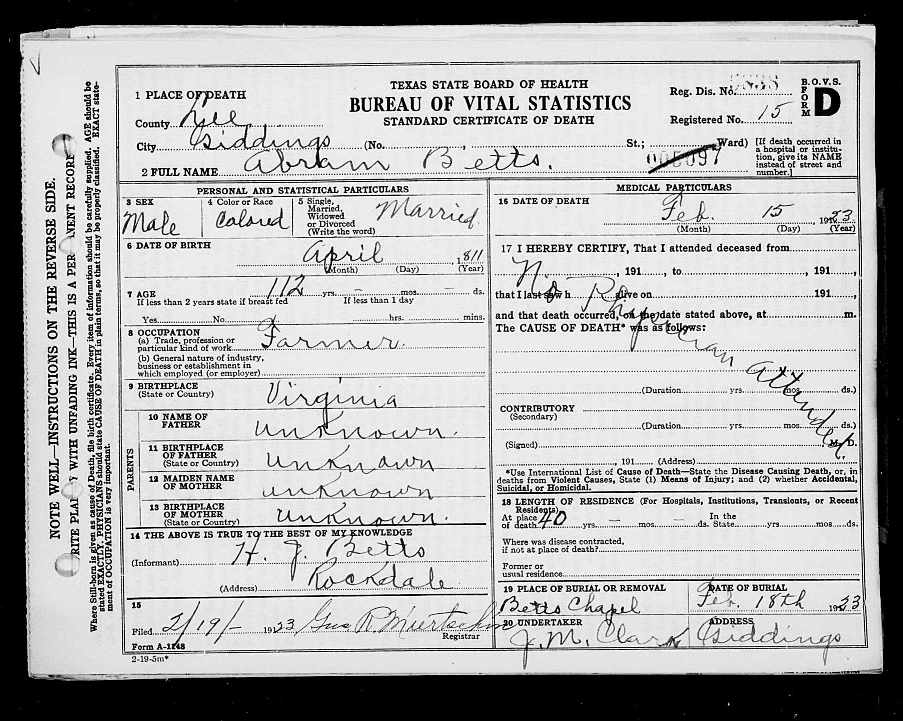 TEXAS STATE BOARD OF HEALTH
BUREAU OF VITAL STATISTICS
STANDARD CERTIFICATE OF DEATH
Reg. Dis. No.
Registered No. 15
B. O. V. S. FORM D
1 PLACE OF DEATH
County Lee
City Giddings (No. , St.; Ward)
[If death occurred in a hospital or institution, give its NAME instead of street and number.]
2 FULL NAME Abram Betts.
PERSONAL AND STATISTICAL PARTICULARS
3 SEX Male
4 Color or Race Colored
5 Single, Married, Widowed or Divorced (Write the word) Married
6 DATE OF BIRTH April 1811
(Month) (Day) (Year)
7 AGE 112 yrs. — mos. — ds.
If less than 2 years state if breast fed If less than 1 day
Yes No hrs. mins.
8 OCCUPATION
(a) Trade, profession or particular kind of work Farmer.
(b) General nature of industry, business or establishment in which employed (or employer)
9 BIRTHPLACE
(State or Country) Virginia
PARENTS
10 NAME OF FATHER Unknown.
11 BIRTHPLACE OF FATHER (State or Country) Unknown
12 MAIDEN NAME OF MOTHER Unknown
13 BIRTHPLACE OF MOTHER (State or Country) Unknown.
14 THE ABOVE IS TRUE TO THE BEST OF MY KNOWLEDGE
(Informant) H. J. Betts
(Address) Rockdale
15
Filed 2/19/- 1923 Gus R. Registrar
Form A-1148
2-19-5m*
MEDICAL PARTICULARS
16 DATE OF DEATH Feb. 15 1923
(Month) (Day) (Year)
17 I HEREBY CERTIFY, That I attended deceased from
, 191 , to , 191 ,
that I last saw h alive on 191 ,
and that death occurred, on the date stated above, at m.
The CAUSE OF DEATH* was as follows:
No Attended
(Duration yrs. mos. ds.)
CONTRIBUTORY
(Secondary)
(Duration yrs. mos. ds.)
(Signed) M. D.
, 191 (Address)
*Use International List of Cause of Death—State the Disease Causing Death, or, in deaths from Violent Causes, State (1) Means of Injury; and (2) whether Accidental, Suicidal, or Homicidal.
18 LENGTH OF RESIDENCE (For Hospitals, Institutions, Transients, or Recent Residents)
At place of death 40 yrs. — mos. — ds. In the State yrs. mos. ds.
Where was disease contracted, if not at place of death?
Former or usual residence
19 PLACE OF BURIAL OR REMOVAL DATE OF BURIAL
Betts Chapel Feb. 18th 1923
20 UNDERTAKER ADDRESS
J. M. Clark Giddings
NOTE WELL—INSTRUCTIONS ON THE REVERSE SIDE.
WITH UNFADING INK—THIS IS A RECORD
Where Still-born is given as cause of Death, file birth certificate. Every item of information should be carefully supplied. AGE should be stated EXACTLY. PHYSICIANS should state CAUSE OF DEATH in plain terms, so that it may be properly classified. EXACT statement of OCCUPATION is very important.